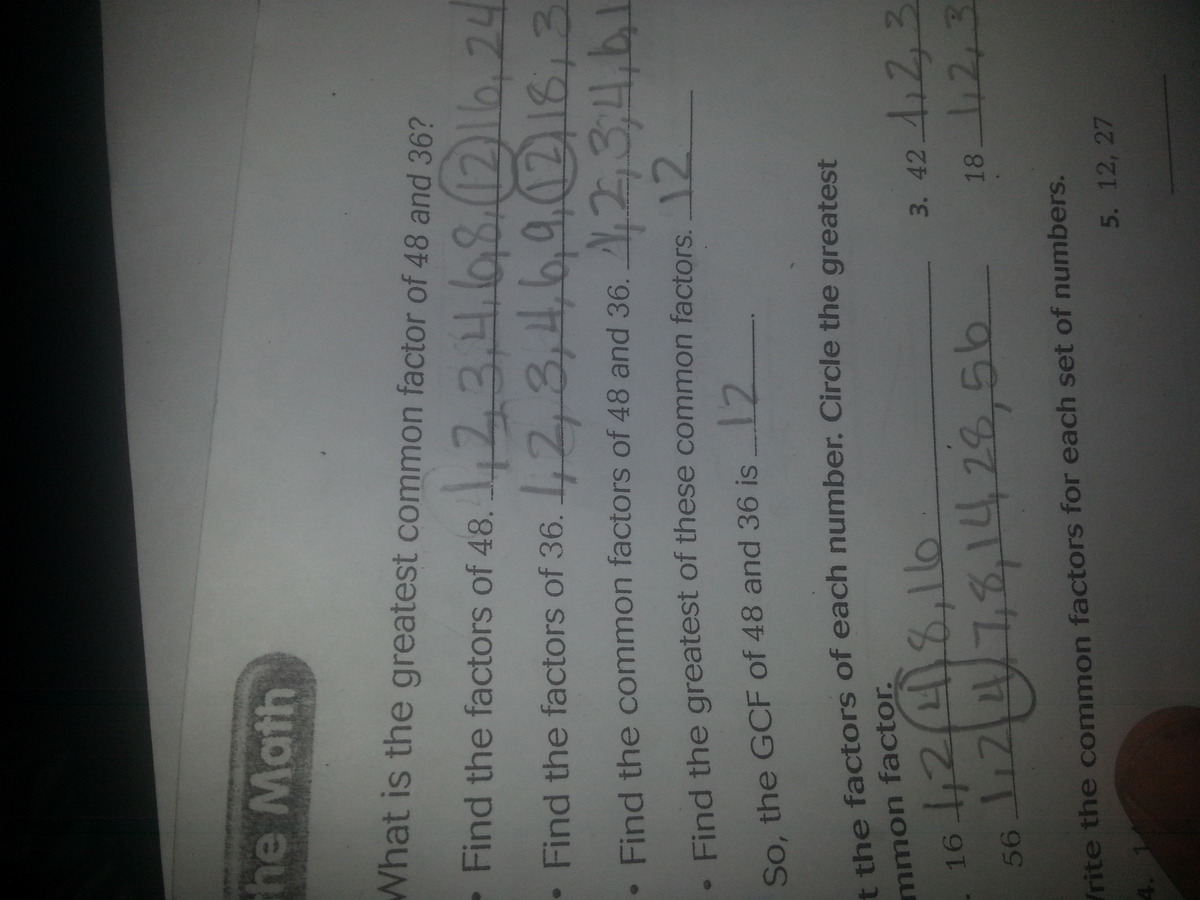 he Math
What is the greatest common factor of 48 and 36?
• Find the factors of 48. 1,2,3,4,6,8,12,16,24
• Find the factors of 36. 1,2,3,4,6,9,12,18,3
• Find the common factors of 48 and 36. 1,2,3,4,6,1
• Find the greatest of these common factors. 12
So, the GCF of 48 and 36 is 12.
t the factors of each number. Circle the greatest
mmon factor.
16 1,2,4,8,16 3. 42 1,2,3
56 1,2,4,7,8,14,28,56 18 1,2,3
rite the common factors for each set of numbers.
4. 5. 12, 27